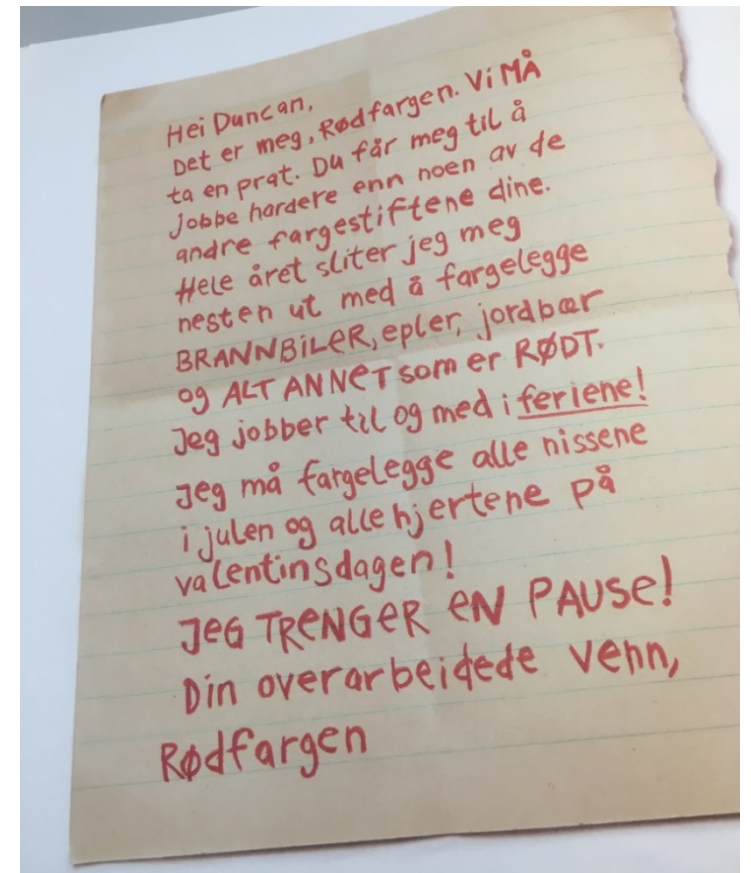 Hei Duncan,
Det er meg, Rødfargen. Vi MÅ
ta en prat. Du får meg til å
jobbe hardere enn noen av de
andre fargestiftene dine.
Hele året sliter jeg meg
nesten ut med å fargelegge
BRANNBILER, epler, jordbær
og ALT ANNET som er RØDT.
Jeg jobber til og med i feriene!
Jeg må fargelegge alle nissene
i julen og alle hjertene på
valentinsdagen!
JEG TRENGER EN PAUSE!
Din overarbeidede venn,
Rødfargen